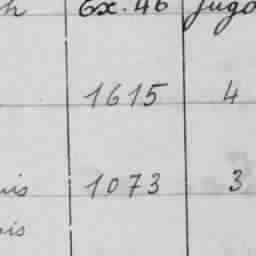 h Gx. 46 Jugo
1615 4
uis 1073 3
ois